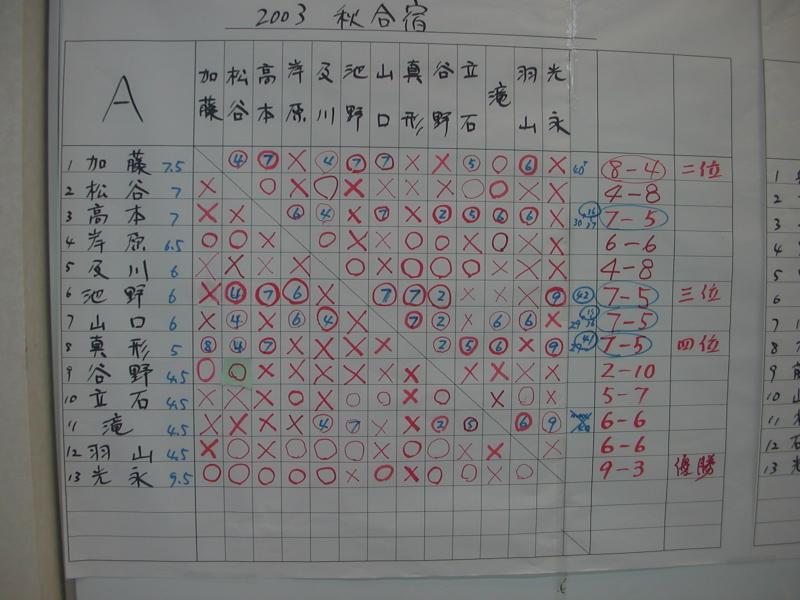 2003 秋合宿
A 加藤 松谷 高本 岸原 及川 池野 山口 真形 谷野 立石 滝 羽山 光永
1 加藤 7.5 ④ ⑦ × ④ ⑦ ⑦ × × ⑤ ○ ⑥ × 40 8-4 二位
2 松谷 7 × ○ × ○ × × × × ○ ○ × × 4-8
3 高本 7 × × ⑥ ④ × ⑦ × ② ⑤ ⑥ ⑥ × 7-5
4 岸原 6.5 ○ ○ × ○ × × ○ ○ × ○ × × 6-6
5 及川 6 × × × × ○ × ○ ○ ○ × × × 4-8
6 池野 6 × ④ ⑦ ⑥ × ⑦ ⑦ ② × × × ⑨ 42 7-5 三位
7 山口 6 × ④ × ⑥ ④ × ⑦ ② × ⑥ ⑥ × 7-5
8 真形 5 ⑧ ④ ⑦ × × × × ② ⑤ ⑥ × ⑨ 7-5 四位
9 谷野 4.5 ○ ○ × × × × × × × × × × 2-10
10 立石 4.5 × × × ○ × ○ ○ × ○ × ○ × 5-7
11 滝 4.5 × × × × ④ ⑦ × × ② ⑤ ⑥ ⑨ 6-6
12 羽山 4.5 × ○ × ○ ○ ○ × ○ ○ × × × 6-6
13 光永 9.5 ○ ○ ○ ○ ○ × ○ × ○ ○ × ○ 9-3 優勝
1
2
3
4
5
6
7
8
9
10
11
12
13